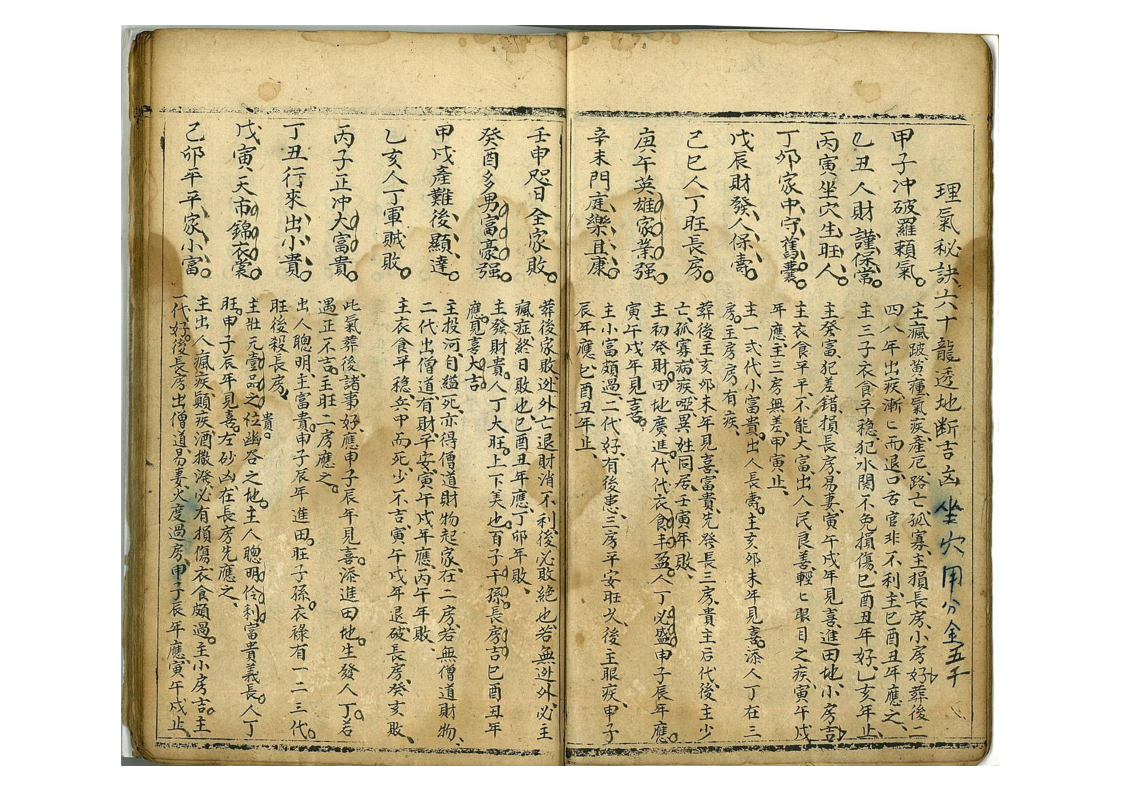 理氣秘訣六十龍透地断吉凶坐穴用分金五千
甲子冲破羅賴氣
主瘋跛黄瘇氣疾產厄路亡孤寡主損長房小房好葬後一
四八年出疾漸匕而退口舌官非不利主巳酉丑年應之
乙丑人財謹保常
主三子衣食平稳犯水関不免損傷巳酉丑年好乙亥年止
丙寅坐穴生旺人
主癸富犯差錯損長房易妻寅午戌年見喜進田地小房吉
丁夘家中守舊囊
主衣食平平不能大富出人民良善輕匕眼目之疾寅午戌
年應主三房無差甲寅止
戊辰財發人保壽
主一弍代小富貴出人長壽主亥夘未年見喜添人丁在三
房主房房有疾
己巳人丁旺長房
葬後主亥夘未年見喜富貴先發長三房貴主后代後主少
亡孤寡病疾啞異姓同居壬寅年敗
庚午英雄家業强
主初發財田地廣進代代衣食丰盈人丁必盛申子辰年應
寅午戌年見喜
辛未門庭樂且康
主小富頗過二代好有後患三房平安旺火後主眼疾申子
辰年應巳酉丑年止
壬申咫日全家敗
葬後家敗逃外亡退財消不利後必敗絶也若無逃外必主
瘋症終日敗也巳酉丑年應丁卯年敗
癸酉多男富豪强
主發財貴人丁大旺上下美也百子千孫長房吉巳酉丑年
應見喜大吉
甲戌產難後顯達
主投河自縊死亦得僧道財物起家在二房若無僧道財物
二代出僧道有財平安寅午戌年應丙午年敗
乙亥人丁軍賊敗
主衣食平稳兵中而死少不吉寅午戌年退破長房癸亥敗
丙子正冲大富貴
此氣葬後諸事好應申子辰年見喜添進田地生發人丁若
遇正不吉主旺二房應之
丁丑行來出小貴
出人聰明主富貴申子辰年進田旺子孫衣祿有一二三代
旺後殺長房
戊寅天市錦衣裳
主壯元壹品之位幽谷之地主人聰明伶利富貴義長人丁
旺申子辰年見喜左砂凶在長房先應之
己卯平平家小富
主出人瘋疾顛疾酒撒潑必有損傷衣食頗過主小房吉主
一代好後長房出僧道易妻火度過房申子辰年應寅午戌止